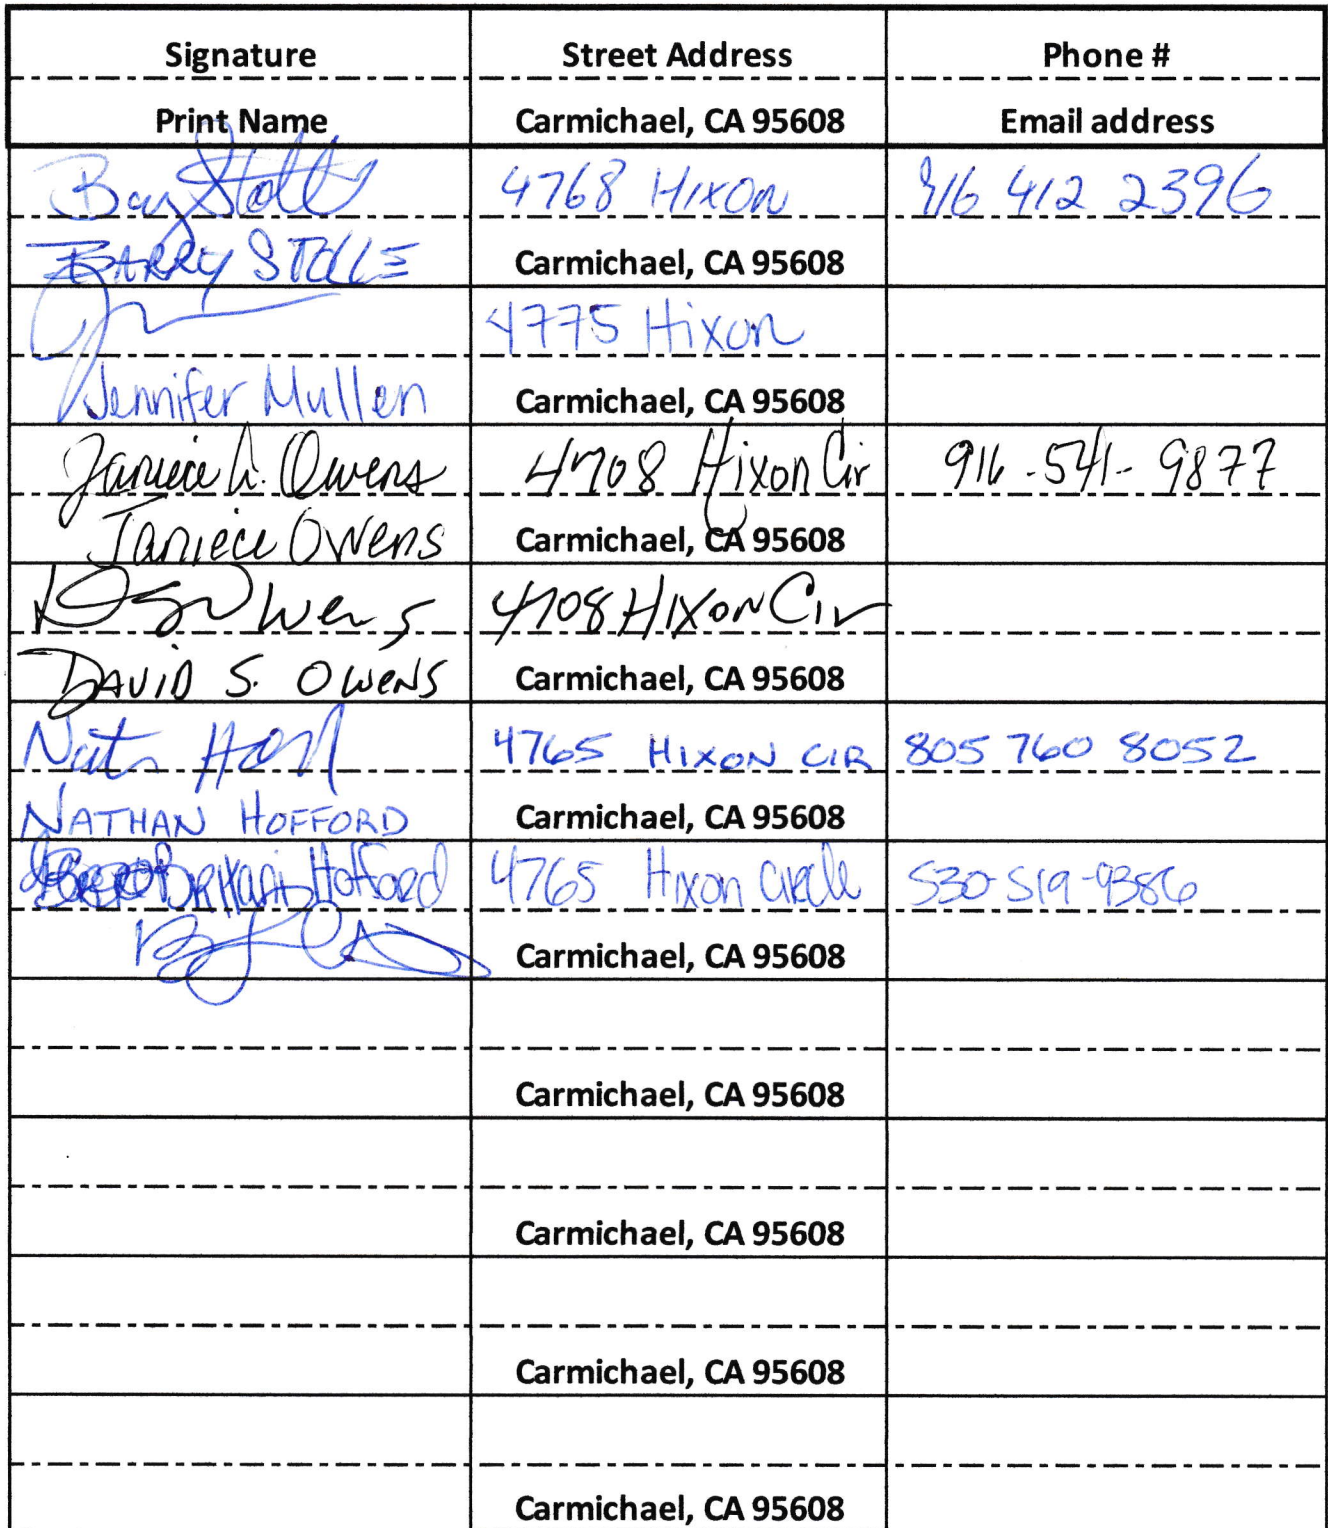 Signature Street Address Phone #
Print Name Carmichael, CA 95608 Email address
4768 HIXON 916 412 2396
BARRY STOLLE Carmichael, CA 95608
4775 Hixon
Jennifer Mullen Carmichael, CA 95608
Janiece A. Owens 4708 Hixon Cir 916-541-9877
Janiece Owens Carmichael, CA 95608
Owens 4708 HIXON Cir
DAVID S. OWENS Carmichael, CA 95608
4765 HIXON CIR 805 760 8052
NATHAN HOFFORD Carmichael, CA 95608
Hofford 4765 Hixon Circle 530-519-9386
Carmichael, CA 95608
Carmichael, CA 95608
Carmichael, CA 95608
Carmichael, CA 95608
Carmichael, CA 95608